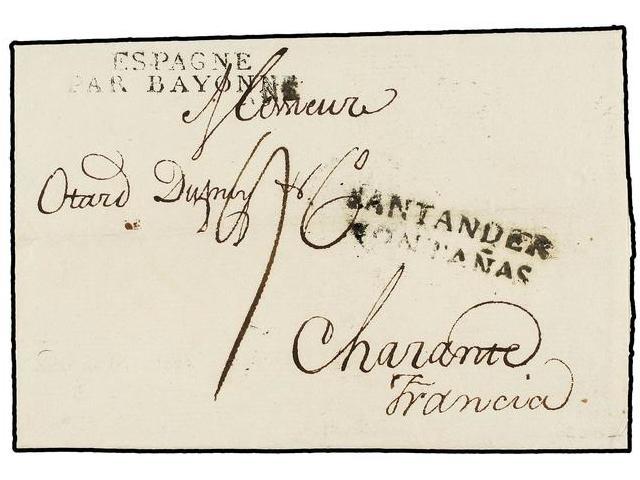 ESPAGNE
PAR BAYONNE
Monsieur
Otard Dupuy & C.
SANTANDER
MONTAÑAS
Charante
Francia